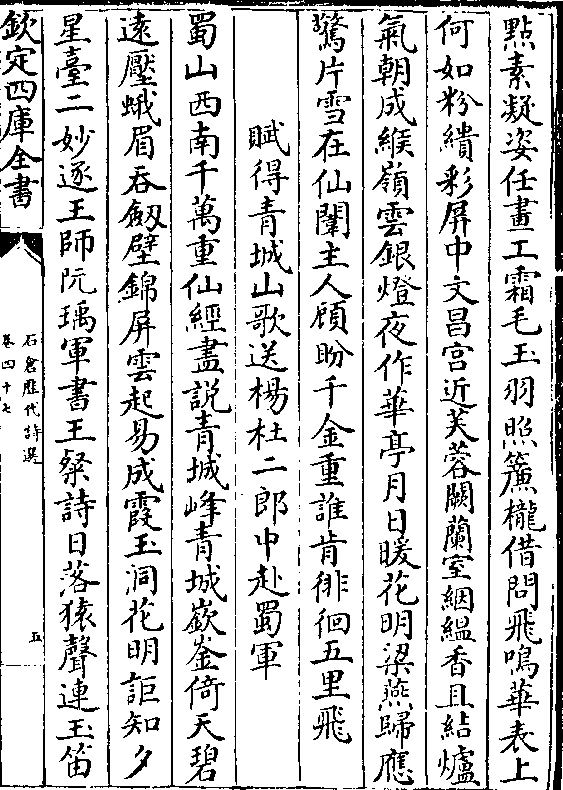 點素凝姿任畫工霜毛玉羽照簾櫳借問飛鳴華表上
何如粉繢彩屏中文昌宮近芙蓉闕蘭室絪緼香且結爐
氣朝成緱嶺雲銀燈夜作華亭月日暖花明梁燕歸應
驚片雪在仙闈主人顧盼千金重誰肯徘徊五里飛
賦得青城山歌送楊杜二郎中赴蜀軍
蜀山西南千萬重仙經盡說青城峰青城嶔崟倚天碧
遠壓峨眉吞劔壁錦屏雲起易成霞玉洞花明詎知夕
星臺二妙逐王師阮瑀軍書王粲詩日落猿聲連玉笛
欽定四庫全書
石倉歷代詩選
卷四十七
五